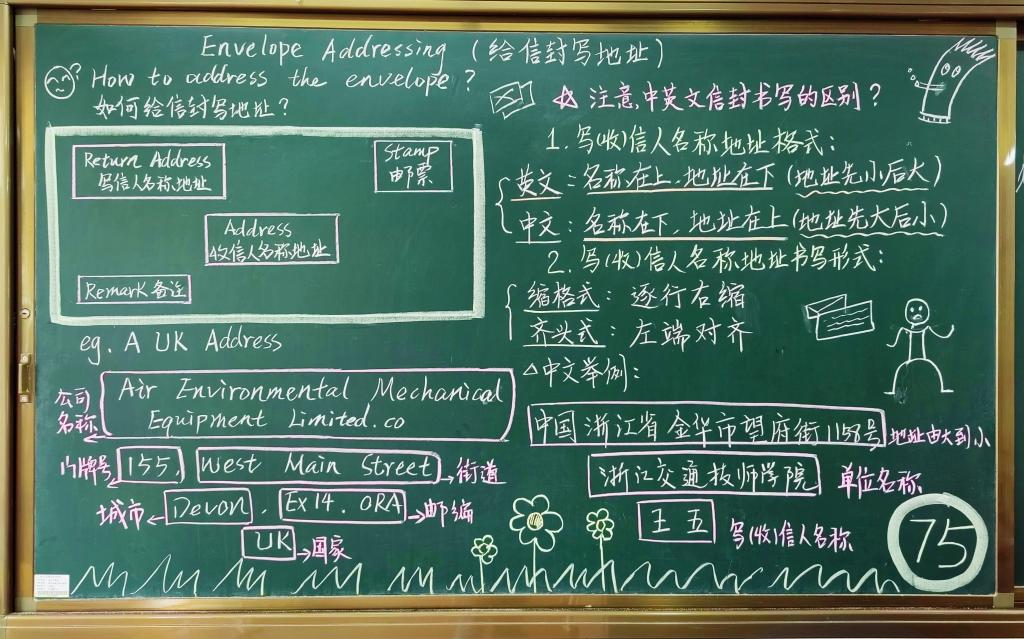 Envelope Addressing (给信封写地址)
How to address the envelope?
如何给信封写地址?
Return Address
写信人名称地址
Stamp
邮票
Address
收信人名称地址
Remark 备注
eg. A UK Address
公司
名称
Air Environmental Mechanical
Equipment Limited.co
门牌号 155, West Main Street 街道
城市 Devon, Ex14. ORA 邮编
UK 国家
注意,中英文信封书写的区别?
1.写(收)信人名称地址格式:
英文:名称在上,地址在下(地址先小后大)
中文:名称在下,地址在上(地址先大后小)
2.写(收)信人名称地址书写形式:
缩格式:逐行右缩
齐头式:左端对齐
△中文举例:
中国浙江省金华市望府街1158号 地址由大到小
浙江交通技师学院 单位名称
王五 写(收)信人名称
75